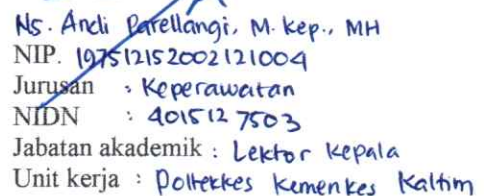 Ns. Andi Parellangi, M. Kep., MH
NIP. 197512152002121004
Jurusan : Keperawatan
NIDN : 4015127503
Jabatan akademik : Lektor Kepala
Unit kerja : Poltekkes Kemenkes Kaltim